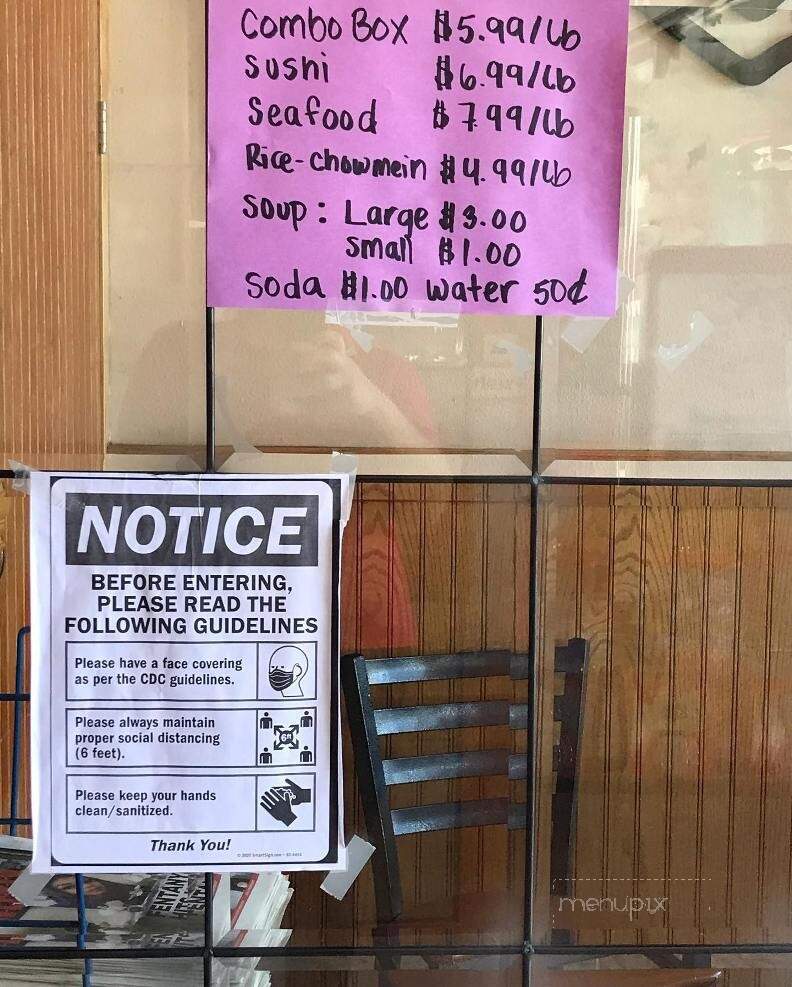 Combo Box $5.99/Lb
Sushi $6.99/Lb
Seafood $7.99/Lb
Rice-chowmein $4.99/Lb
Soup: Large $3.00
small $1.00
Soda $1.00 water 50¢
NOTICE
BEFORE ENTERING,
PLEASE READ THE
FOLLOWING GUIDELINES
Please have a face covering
as per the CDC guidelines.
Please always maintain
proper social distancing
(6 feet).
6ft
Please keep your hands
clean/sanitized.
Thank You!
menupix